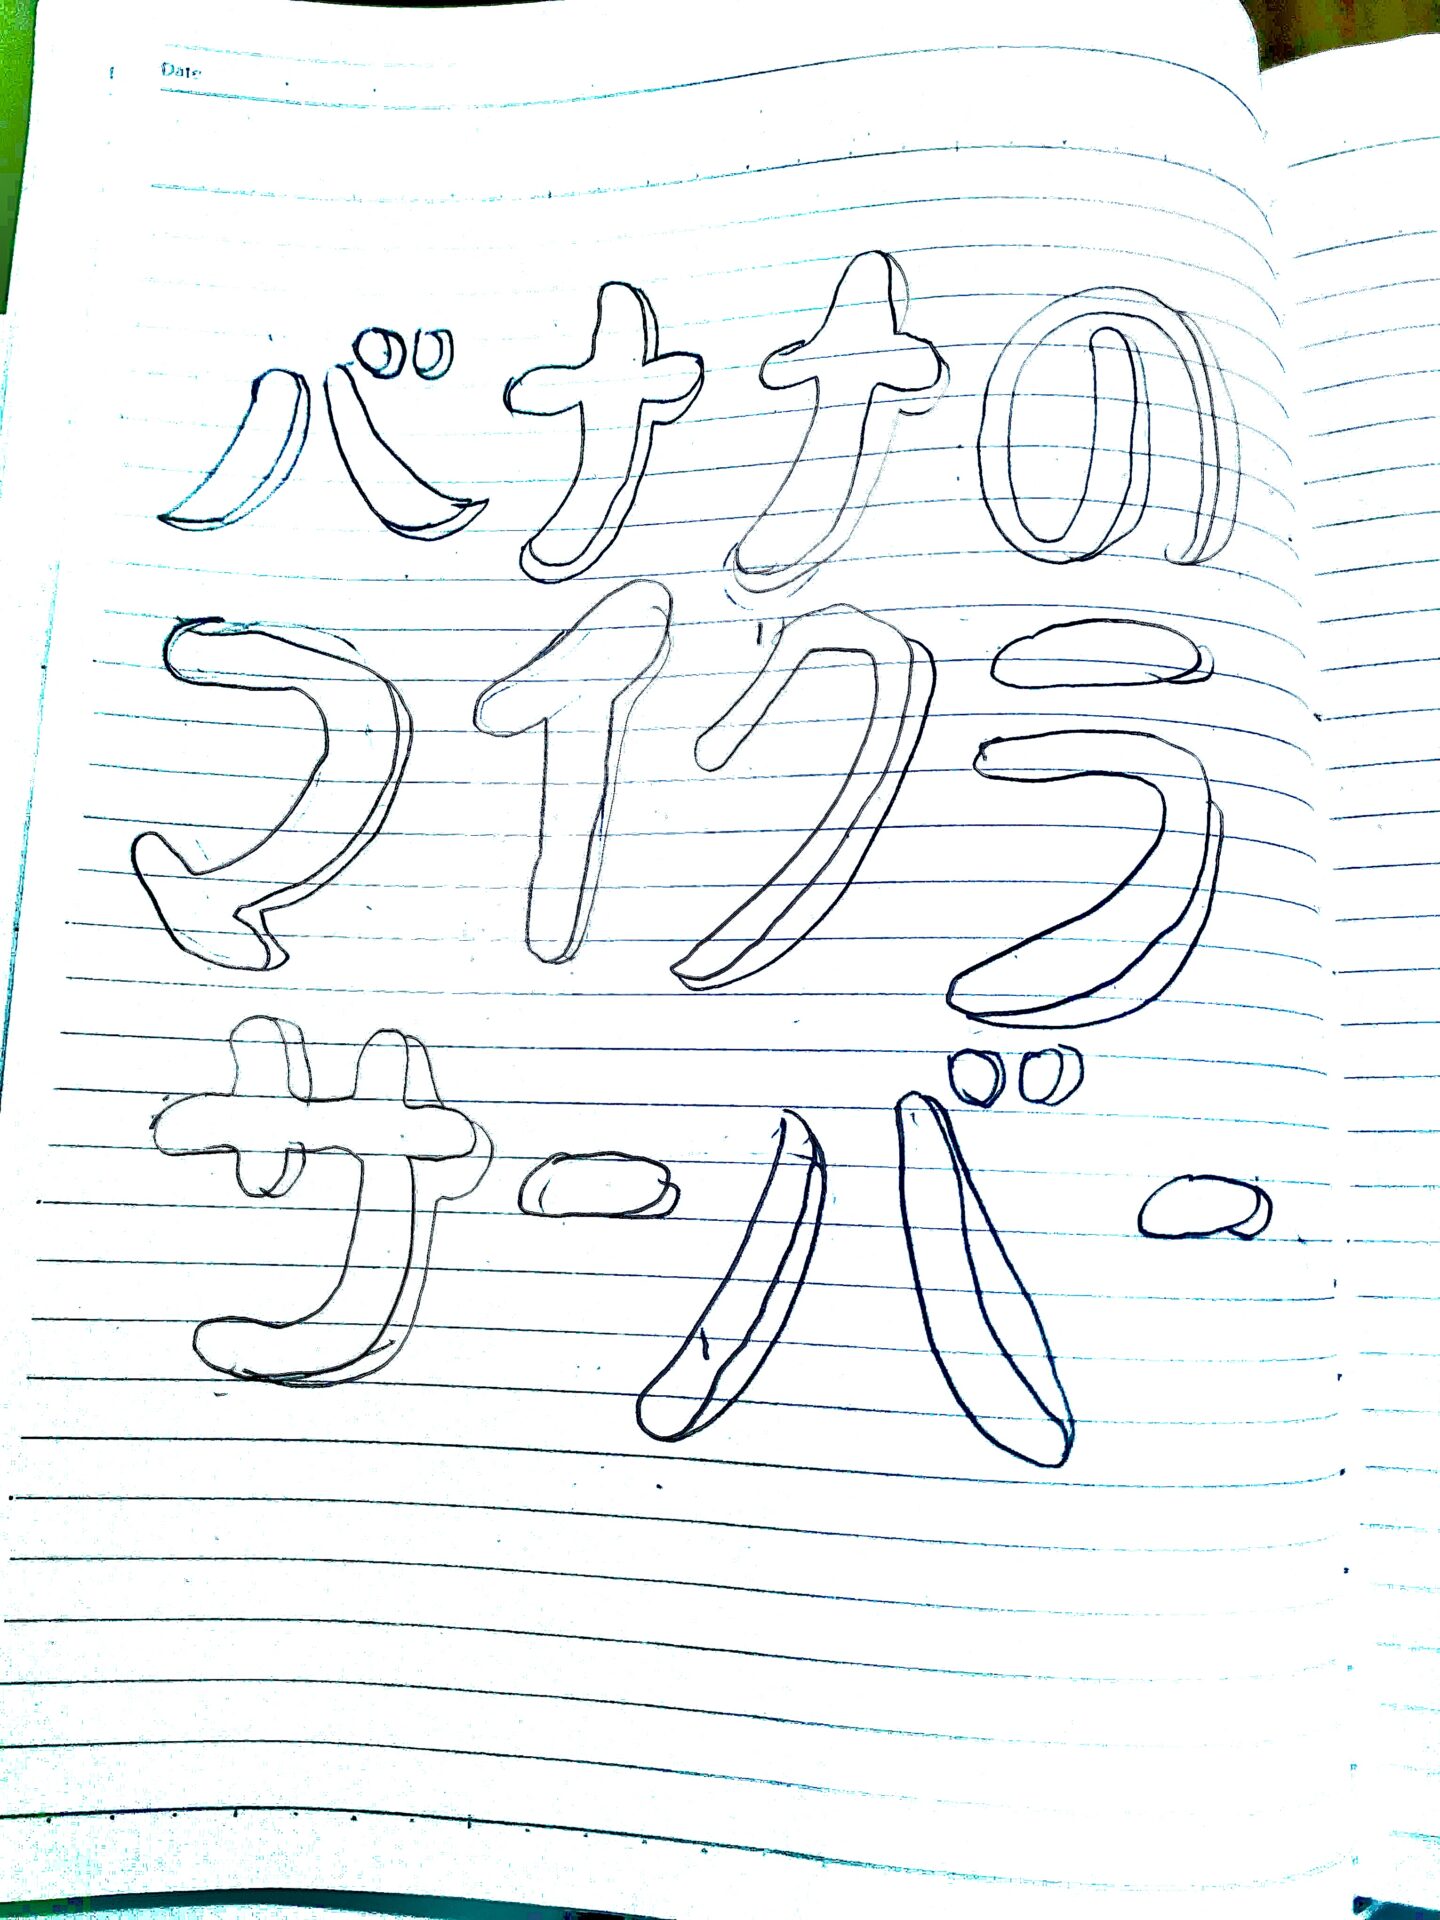 Date
バナナの
マイクラ
サーバー